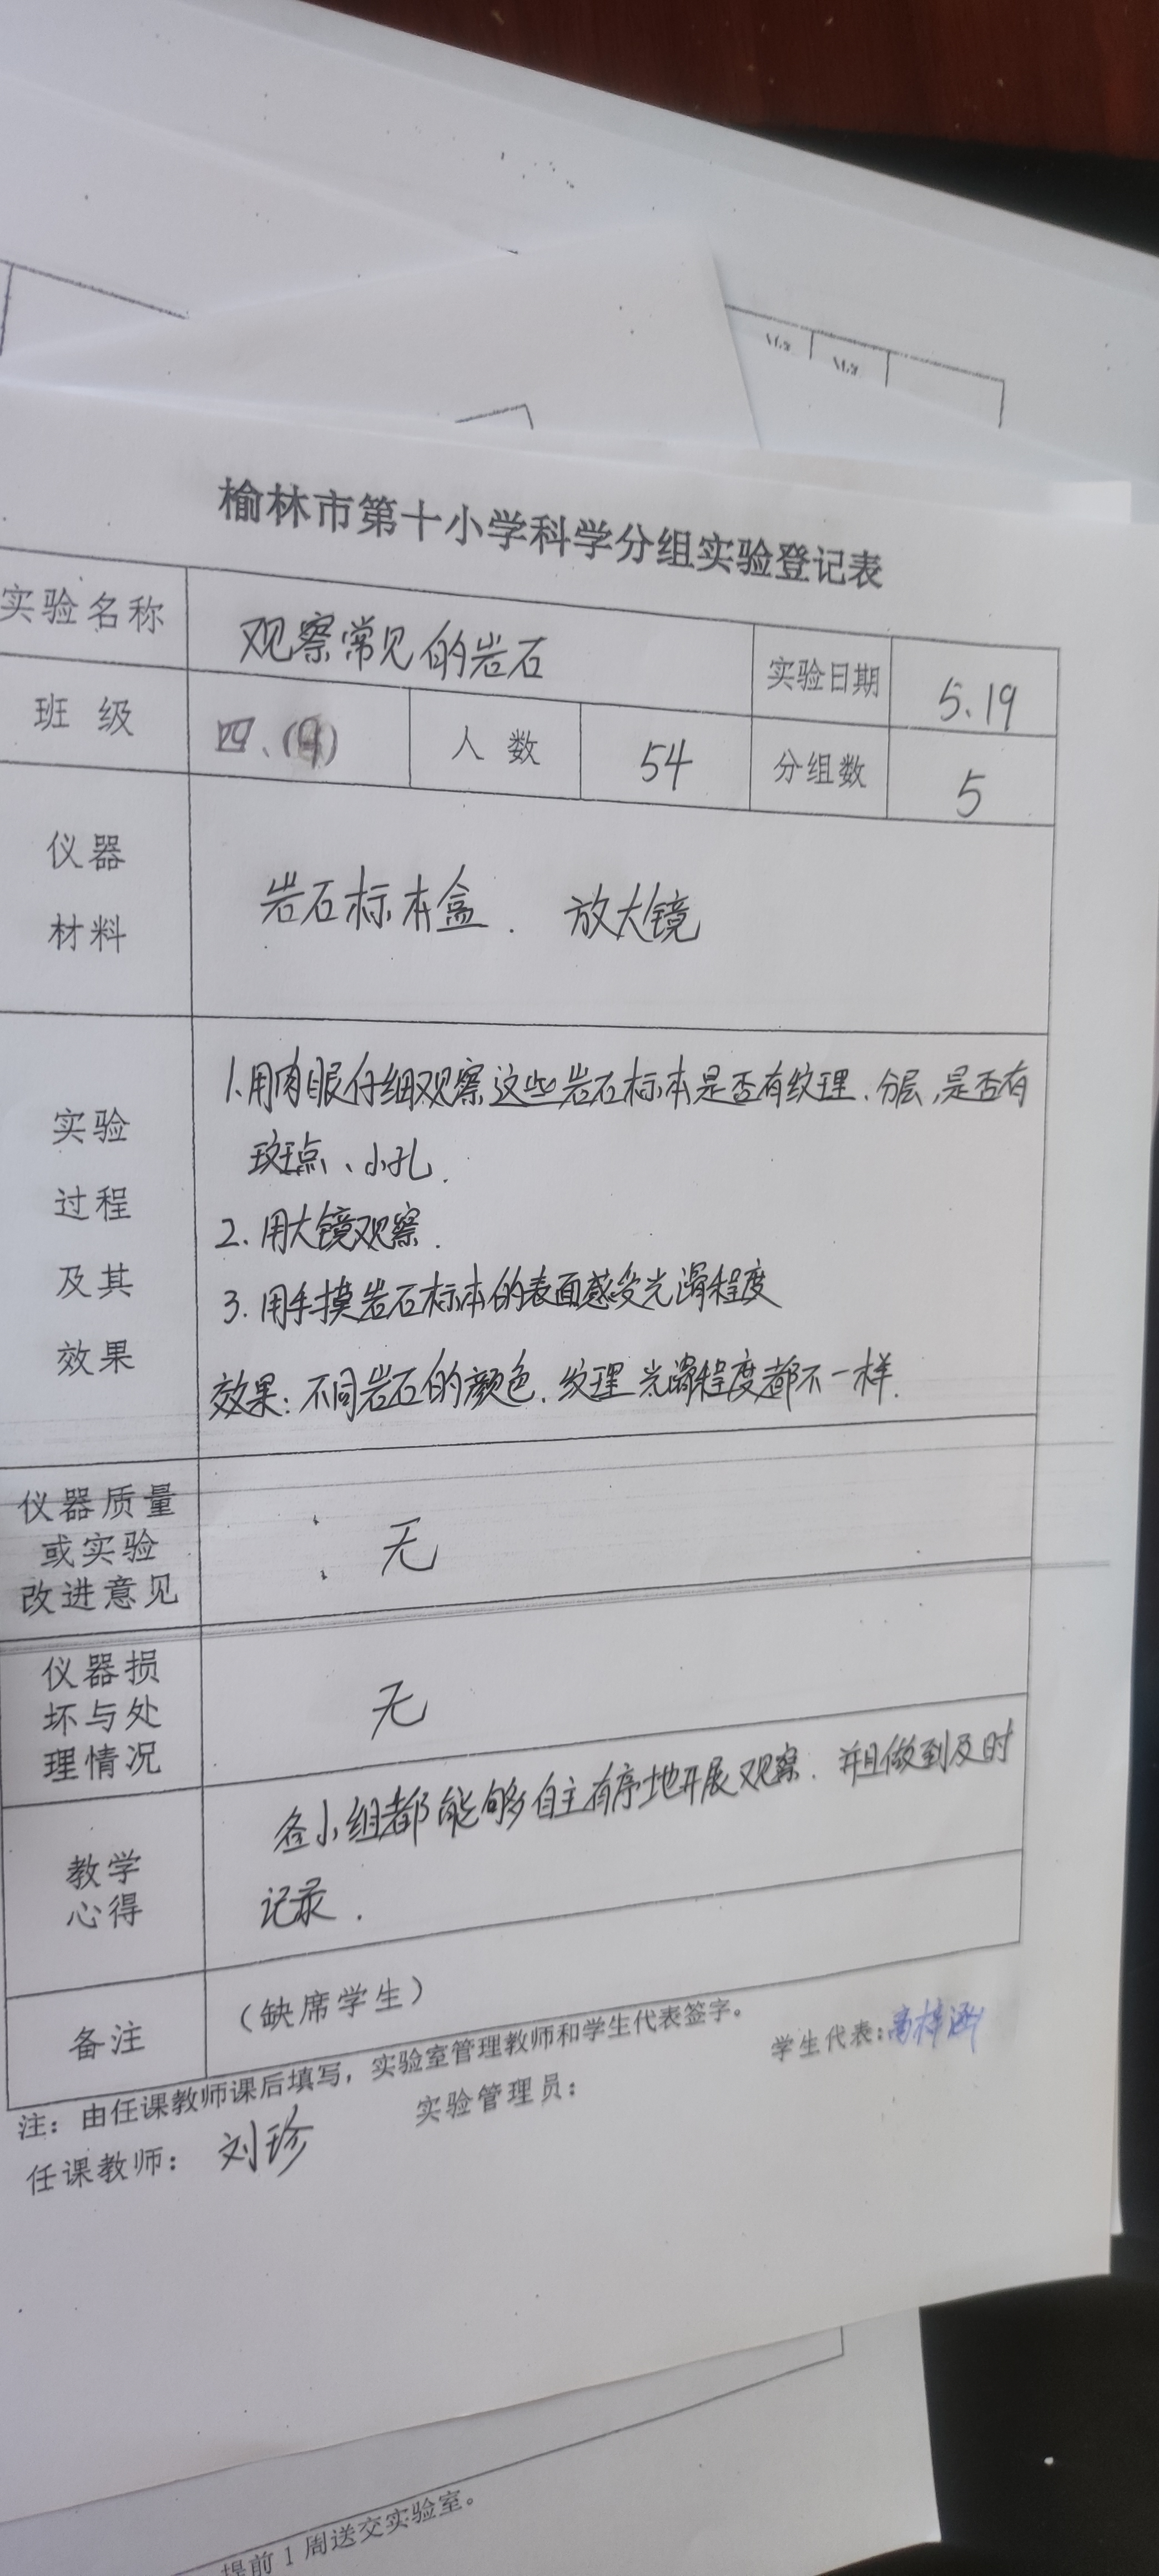 榆林市第十小学科学分组实验登记表
实验名称 观察常见的岩石 实验日期 5.19
班级 四、() 人数 54 分组数 5
仪器
材料
岩石标本盒. 放大镜
实验
过程
及其
效果
1.用肉眼仔细观察这些岩石标本是否有纹理、分层,是否有
斑点、小孔.
2.用大镜观察.
3.用手摸岩石标本的表面感受光滑程度
效果:不同岩石的颜色.纹理.光滑程度都不一样.
仪器质量
或实验
改进意见
无
仪器损
坏与处
理情况
无
教学
心得
各小组都能够自主有序地开展观察.并且做到及时
记录.
备注 (缺席学生)
注:由任课教师课后填写,实验室管理教师和学生代表签字。
任课教师: 刘珍 实验管理员: 学生代表:高梓涵
提前1周送交实验室。